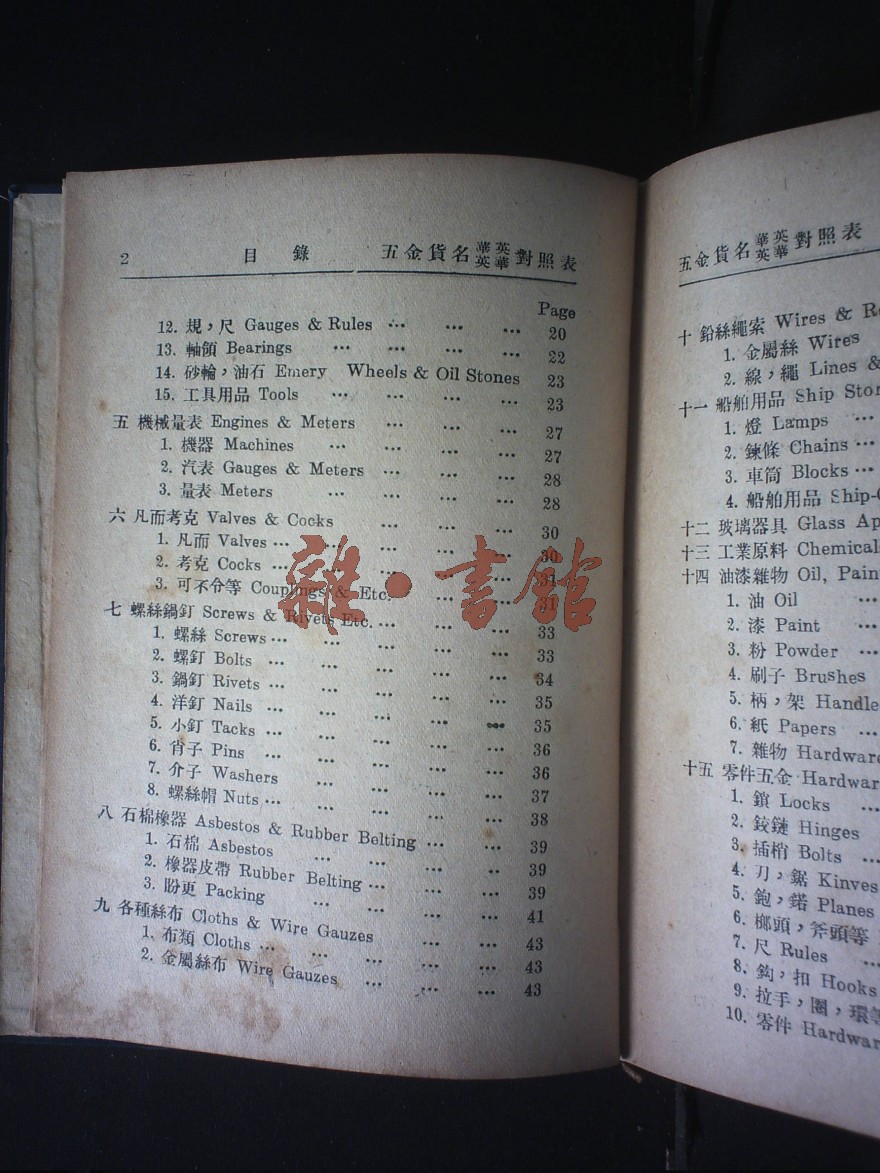 2 目錄 五金貨名華英英華對照表
Page
12. 規，尺 Gauges & Rules ... ... ... 20
13. 軸領 Bearings ... ... ... 22
14. 砂輪，油石 Emery Wheels & Oil Stones 23
15. 工具用品 Tools ... ... ... ... 23
五 機械量表 Engines & Meters ... ... ... 27
1. 機器 Machines ... ... ... ... 27
2. 汽表 Gauges & Meters ... ... ... 28
3. 量表 Meters ... ... ... ... 28
六 凡而考克 Valves & Cocks ... ... ... 30
1. 凡而 Valves ... ... ... ... 30
2. 考克 Cocks ... ... ... ... 31
3. 可不令等 Couplings & Etc. ... ... 31
七 螺絲鍋釘 Screws & Rivets Etc. ... ... ... 33
1. 螺絲 Screws ... ... ... ... ... 33
2. 螺釘 Bolts ... ... ... ... ... 34
3. 鍋釘 Rivets ... ... ... ... ... 35
4. 洋釘 Nails ... ... ... ... ... 35
5. 小釘 Tacks ... ... ... ... ... 36
6. 肖子 Pins ... ... ... ... ... 36
7. 介子 Washers ... ... ... ... 37
8. 螺絲帽 Nuts ... ... ... ... ... 38
八 石棉橡器 Asbestos & Rubber Belting ... ... 39
1. 石棉 Asbestos ... ... ... ... 39
2. 橡器皮帶 Rubber Belting ... ... ... 39
3. 盼更 Packing ... ... ... ... 41
九 各種絲布 Cloths & Wire Gauzes ... ... ... 43
1. 布類 Cloths ... ... ... ... ... 43
2. 金屬絲布 Wire Gauzes ... ... ... 43
雜·書館
五金貨名華英英華對照表
十 鉛絲繩索 Wires &
1. 金屬絲 Wires
2. 線，繩 Lines &
十一 船舶用品 Ship
1. 燈 Lamps ...
2. 鍊條 Chains ...
3. 車筒 Blocks ...
4. 船舶用品
十二 玻璃器具 Glass
十三 工業原料
十四 油漆雜物 Oil,
1. 油 Oil ...
2. 漆 Paint ...
3. 粉 Powder ...
4. 刷子 Brushes
5. 柄，架
6. 紙 Papers ...
7. 雜物
十五 零件五金
1. 鎖 Locks ...
2. 鉸鏈 Hinges
3. 插梢 Bolts ...
4. 刀，鋸 Kinves
5. 鉋，鍩 Planes
6. 榔頭，斧頭等
7. 尺 Rules ...
8. 鈎，扣 Hooks
9. 拉手，圈，環
10. 零件